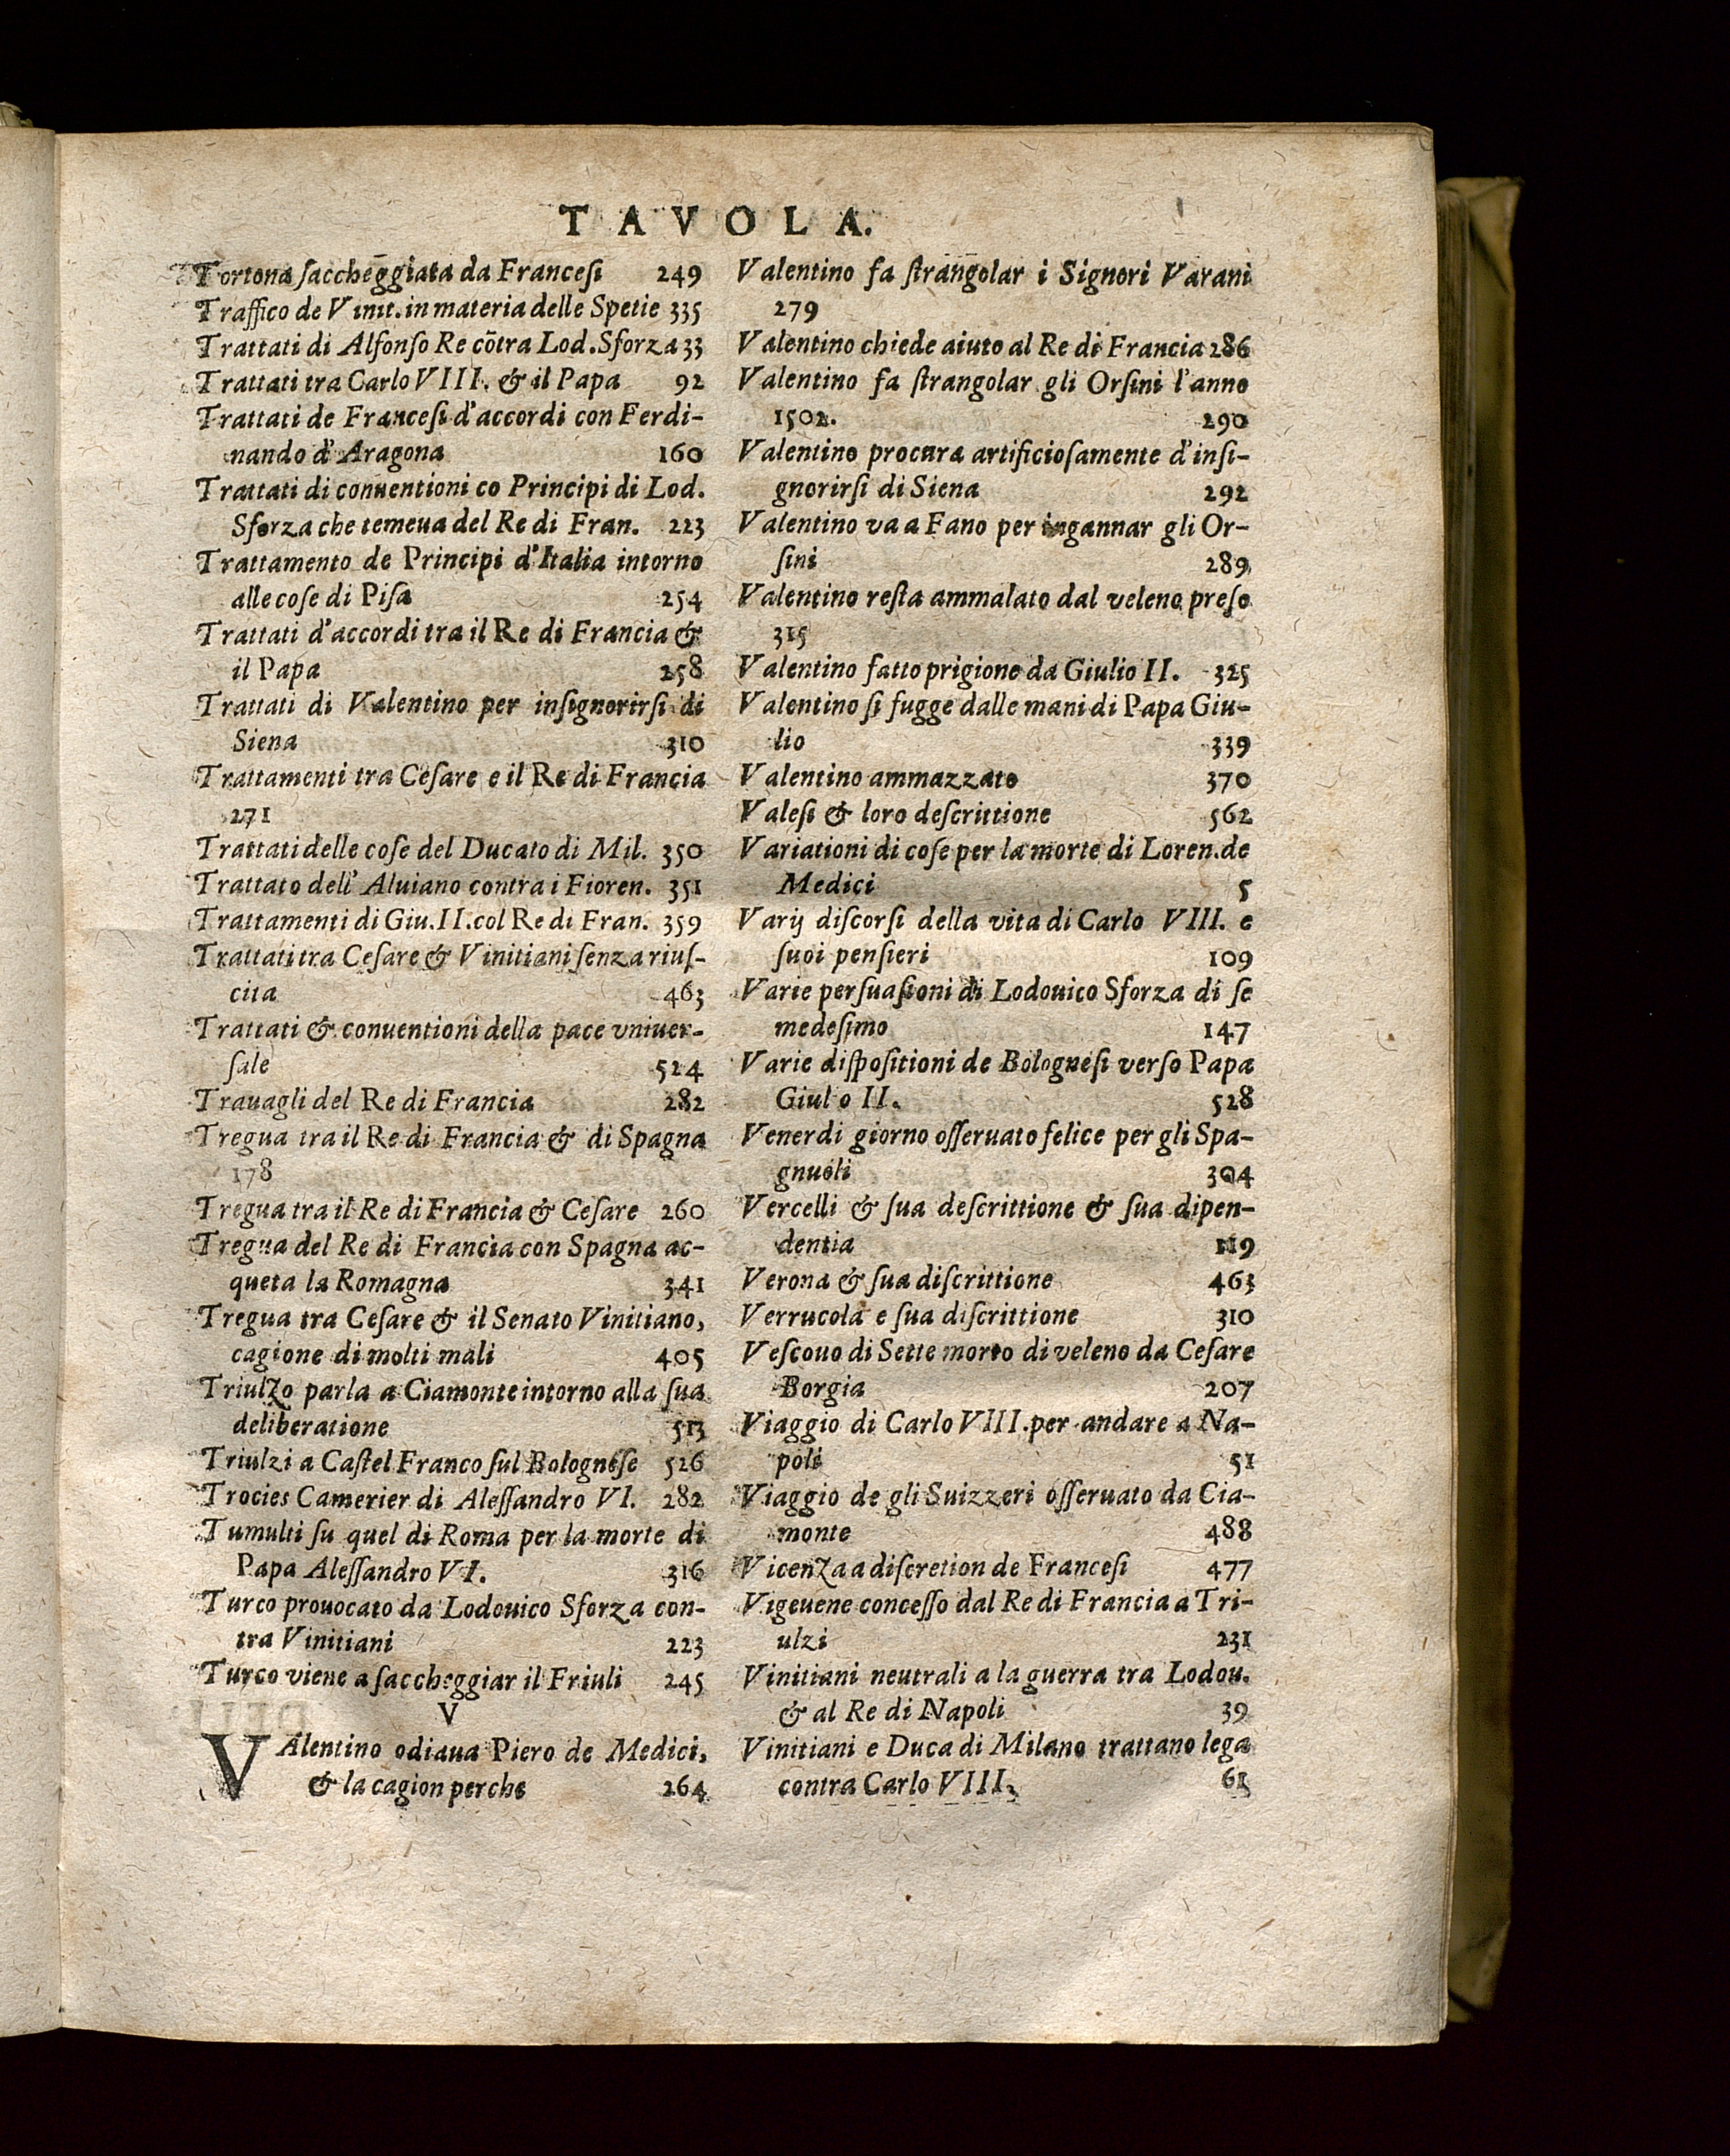 TAVOLA.
Tortona saccheggiata da Francesi 249
Traffico de Vinit. in materia delle Spetie 335
Trattati di Alfonso Re cõtra Lod. Sforza 33
Trattati tra Carlo VIII. & il Papa 92
Trattati de Francesi d'accordi con Ferdi-
nando d'Aragona 160
Trattati di conuentioni co Principi di Lod.
Sforza che temeua del Re di Fran. 223
Trattamento de Principi d'Italia intorno
alle cose di Pisa 254
Trattati d'accordi tra il Re di Francia &
il Papa 258
Trattati di Valentino per insignorirsi di
Siena 310
Trattamenti tra Cesare e il Re di Francia
271
Trattati delle cose del Ducato di Mil. 350
Trattato dell' Aluiano contra i Fioren. 351
Trattamenti di Giu. II. col Re di Fran. 359
Trattati tra Cesare & Vinitiani senza rius-
cita 463
Trattati & conuentioni della pace vniuer-
sale 524
Trauagli del Re di Francia 282
Tregua tra il Re di Francia & di Spagna
178
Tregua tra il Re di Francia & Cesare 260
Tregua del Re di Francia con Spagna ac-
queta la Romagna 341
Tregua tra Cesare & il Senato Vinitiano,
cagione di molti mali 405
Triulzo parla a Ciamonte intorno alla sua
deliberatione 513
Triulzi a Castel Franco sul Bolognese 526
Trocies Camerier di Alessandro VI. 282
Tumulti su quel di Roma per la morte di
Papa Alessandro VI. 316
Turco prouocato da Lodouico Sforza con-
tra Vinitiani 223
Turco viene a saccheggiar il Friuli 245
V
VAlentino odiaua Piero de Medici,
& la cagion perche 264
Valentino fa strangolar i Signori Varani
279
Valentino chiede aiuto al Re di Francia 286
Valentino fa strangolar gli Orsini l'anno
1502. 290
Valentino procura artificiosamente d'insi-
gnorirsi di Siena 292
Valentino va a Fano per ingannar gli Or-
sini 289
Valentino resta ammalato dal veleno preso
315
Valentino fatto prigione da Giulio II. 325
Valentino si fugge dalle mani di Papa Giu-
lio 339
Valentino ammazzato 370
Valesi & loro descrittione 562
Variationi di cose per la morte di Loren. de
Medici 5
Varij discorsi della vita di Carlo VIII. e
suoi pensieri 109
Varie persuasioni di Lodouico Sforza di se
medesimo 147
Varie dispositioni de Bolognesi verso Papa
Giul o II. 528
Venerdi giorno osseruato felice per gli Spa-
gnuoli 304
Vercelli & sua descrittione & sua dipen-
dentia 119
Verona & sua discrittione 463
Verrucola e sua discrittione 310
Vescouo di Sette morto di veleno da Cesare
Borgia 207
Viaggio di Carlo VIII. per andare a Na-
poli 51
Viaggio de gli Suizzeri osseruato da Cia-
monte 488
Vicenza a discretion de Francesi 477
Vigeuene concesso dal Re di Francia a Tri-
ulzi 231
Vinitiani neutrali a la guerra tra Lodou.
& al Re di Napoli 39
Vinitiani e Duca di Milano trattano lega
contra Carlo VIII. 61